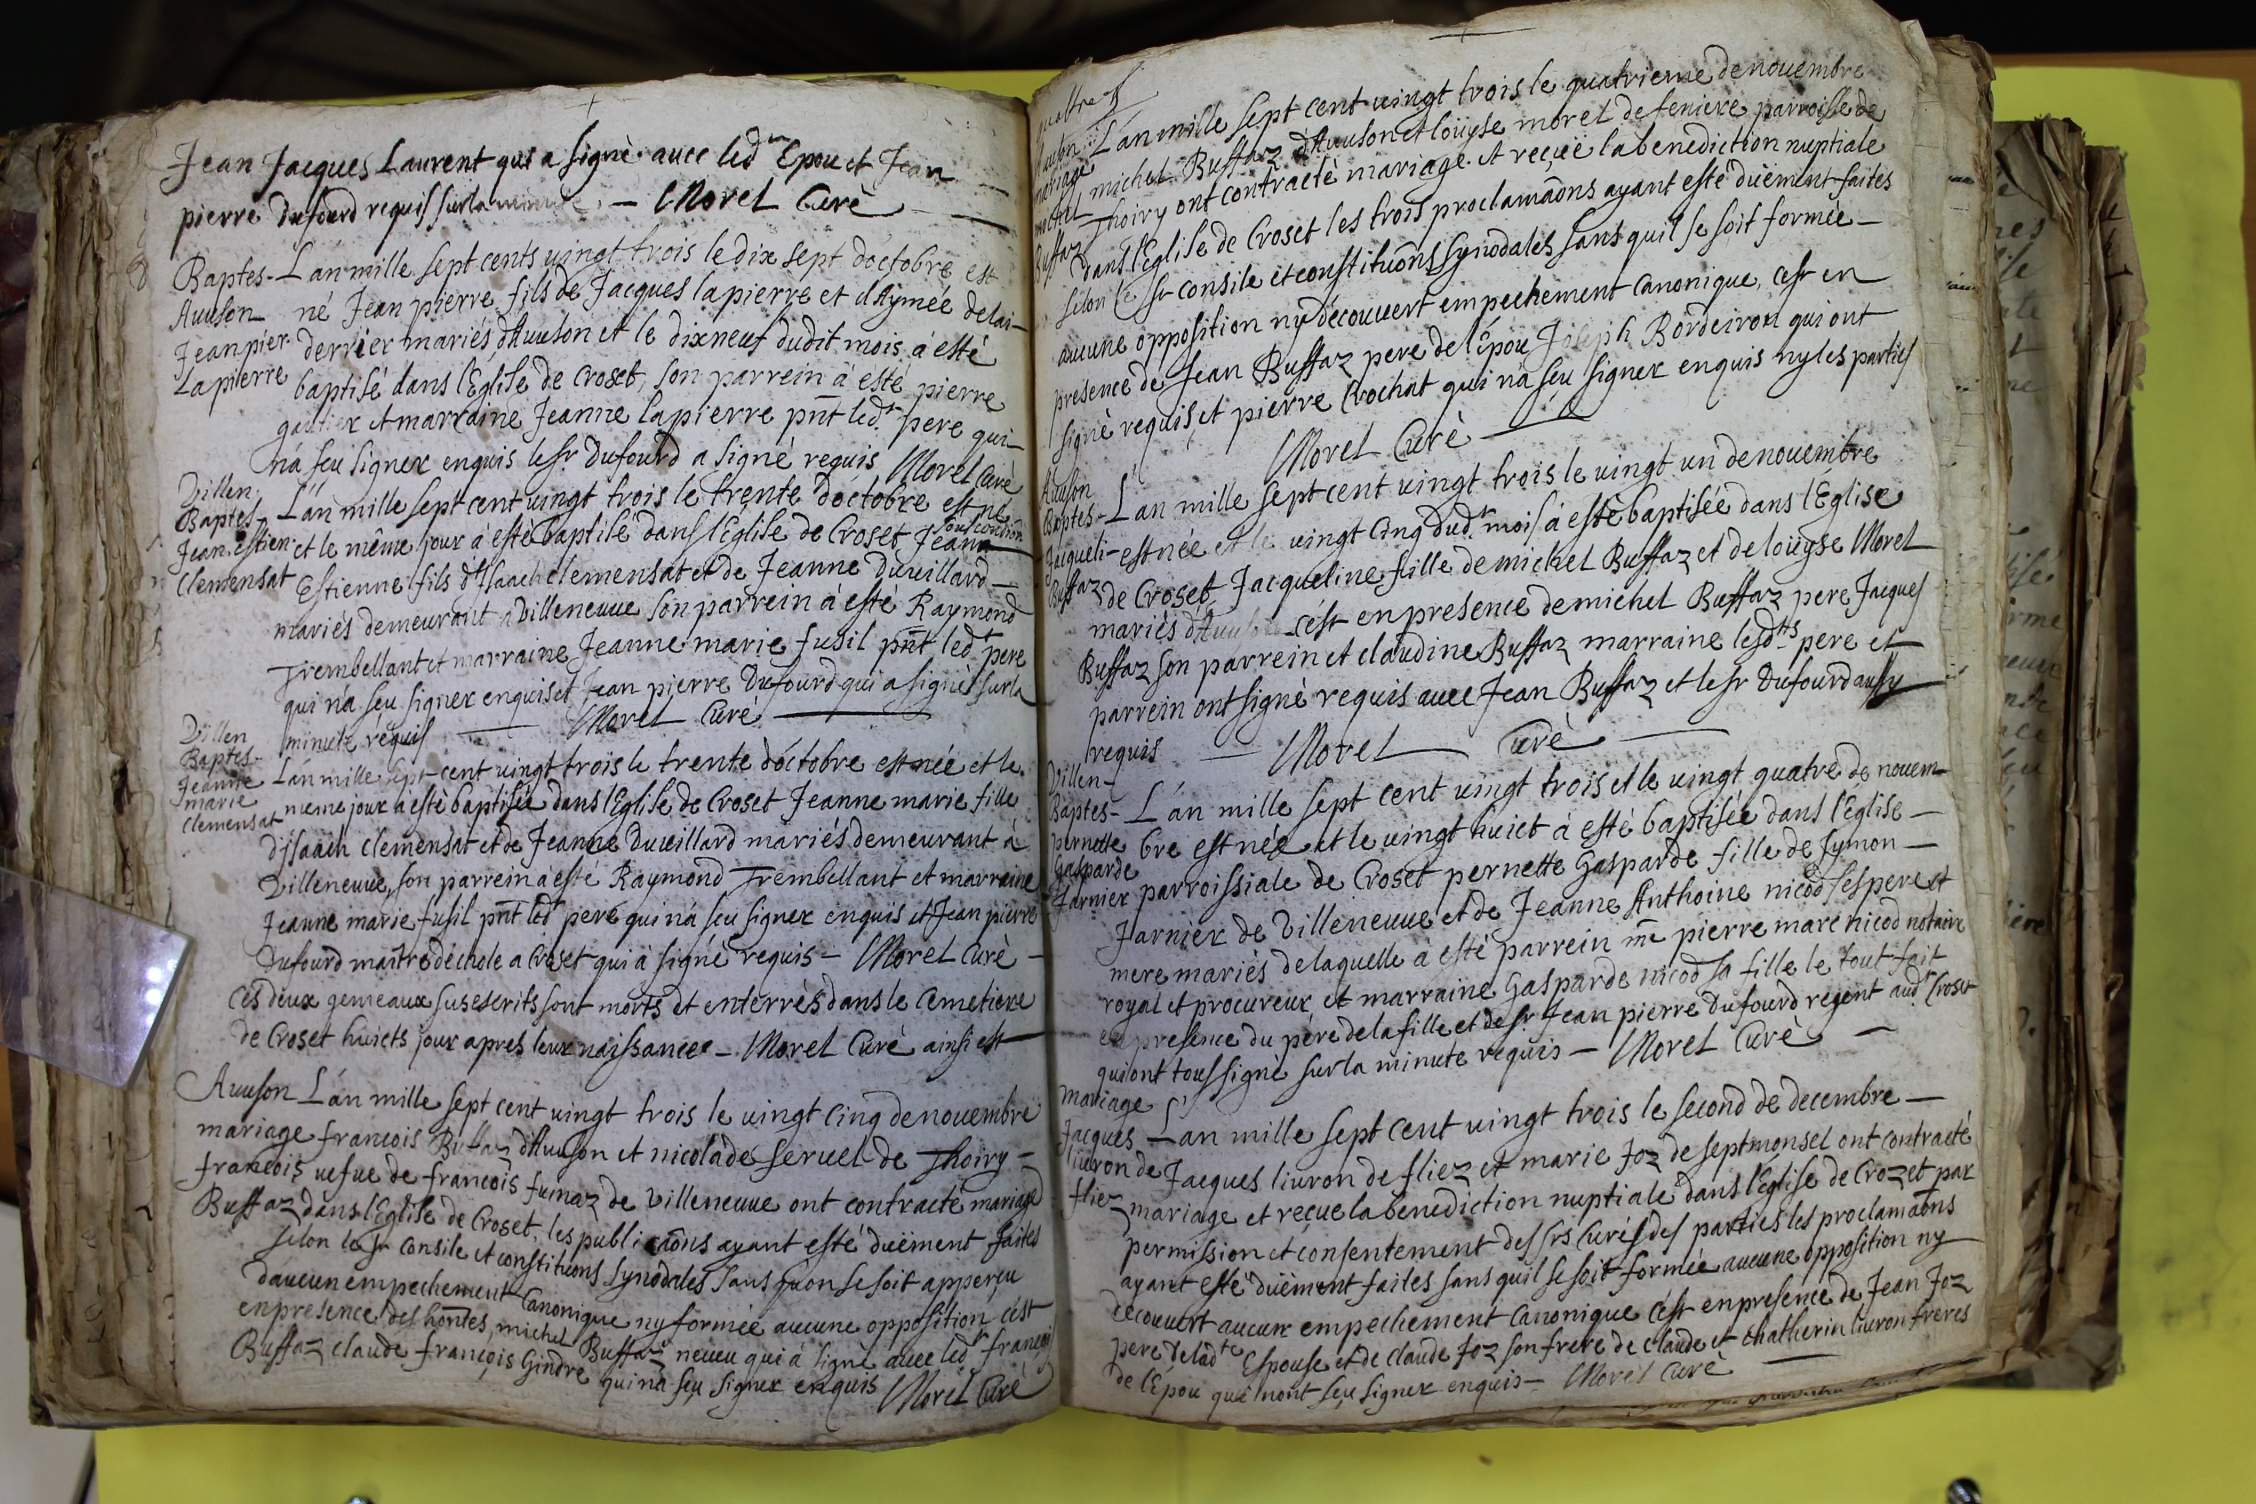 Jean Jacques Laurent qui a signè avec led.r Epou et Jean
pierre Dufourd requis sur la minute — Morel Curè
Baptes- L'an mille sept cents vingt trois le dix sept d'octobre est
Avuson né Jean pierre fils de Jacques lapierre et d'Aymée delai-
Jean pier. derrier mariés d'Avuson et le dixneuf dudit mois à esté
Lapierre baptisé dans l'Eglise de Croset, son parrein à esté pierre
gautier et marraine Jeanne lapierre pnt led.t pere qui
n'a sçu signer enquis le sr. Dufourd a signè requis Morel Curè
Villen.
Baptes- L'an mille sept cent vingt trois le trente d'octobre est né
sous condition
Jean estien. et le même jour à esté baptisé dans l'Eglise de Croset Jean
Clemensat Estienne fils d'Isaach clemensat et de Jeanne Duvillard
mariés demeurant à Villeneuve son parrein à esté Raymond
Trembellant et marraine Jeanne marie fusil pnt led.t pere
qui n'a sçu signer enquis et Jean pierre Dufourd qui a signè sur la
minute requis — Morel Curè
Villen
Baptes-
Jeanne L'an mille sept cent vingt trois le trente d'octobre est née et le
marie même jour à esté baptisée dans l'Eglise de Croset Jeanne marie fille
Clemensat
d'Isaach clemensat et de Jeanne Duvillard mariés demeurant à
Villeneuve, son parrein à esté Raymond Trembellant et marraine
Jeanne marie fusil pnt led.t pere qui n'a sçu signer enquis et Jean pierre
Dufourd maitre d'échole a Croset qui à signé requis — Morel Curè
ces deux gemeaux susescrits sont morts et enterrès dans le Cemetiere
de Croset huicts jour apres leur naissance — Morel Curè ainsi est
Avuson L'an mille sept cent vingt trois le vingt cinq de novembre
mariage francois Buffaz d'Avuson et nicolade servel de Thoiry
francois vefve de francois fumaz de Villeneuve ont contracté mariage
Buffaz dans l'Eglise de Croset, les publicãons ayant esté duëment faites
selon le st consile et constituõns synodales sans qu'on se soit apperçu
d'aucun empechement Canonique ny formée aucune opposition c'est
en presence des honñtes michel Buffaz neveu qui à signè avec led.t francois
Buffaz claude françois Gindre qui n'a sçu signer enquis Morel Curè
quattre
Avuson L'an mille sept cent vingt trois le quatrieme de novembre
mariage michel Buffaz d'Avuson et loüyse morel de feniere parroisse de
michel Thoiry ont contractè mariage et reçüe la benediction nuptiale
Buffaz dans l'Eglise de Croset les trois proclamãons ayant esté düëment faites
selon le st consile et constituõns synodales sans quil se soit formée
aucune opposition ny découvert empechement canonique, c'est en
presence de Jean Buffaz pere de l'épou Joseph Bordeiron qui ont
signè requis et pierre Crochat qui n'a sçu signer enquis ny les parties
Morel Curè
Avuson
Baptes- L'an mille sept cent vingt trois le vingt un de novembre
Jacqueli- est née et le vingt Cinq dud.t mois à esté baptisée dans l'Eglise
Buffaz de Croset Jacqueline fille de michel Buffaz et de loüyse Morel
mariés d'Avuson c'est en presence de michel Buffaz pere Jacques
Buffaz son parrein et claudine Buffaz marraine lesd.ts pere et
parrein ont signè requis avec Jean Buffaz et le sr Dufourd aussy
requis — Morel Curè
Villen-
Baptes- L'an mille sept cent vingt trois et le vingt quatre de novem-
pernette bre est née et le vingt huict à esté baptisée dans l'Eglise
Gasparde parroissiale de Croset pernette Gasparde fille de symon
Jarnier Jarnier de Villeneuve et de Jeanne Anthoine nicod ses pere et
mere mariés de laquelle à esté parrein me pierre marc nicod notaire
royal et procureur et marraine Gasparde nicod sa fille le tout fait
en presence du père de la fille et de sr. Jean pierre Dufourd regent aud.t Croset
qui ont tous signé sur la minute requis — Morel Curè
Mariage
Jacques L'an mille sept cent vingt trois le second de decembre
livron de Jacques livron de fliez et marie Joz de septmonsel ont contracté
fliez mariage et reçue la benediction nuptiale dans l'Eglise de Crozet par
permission et consentement des srs Curés des parties les proclamãons
ayant esté düëment faites sans quil se soit formée aucune opposition ny
decouvert aucun empechement Canonique c'est en presence de Jean Joz
pere de lad.te Espouse et de claude Joz son frere de claude et Chatherin livron freres
de l'Epou qui n'ont sçu signer enquis — Morel Curè